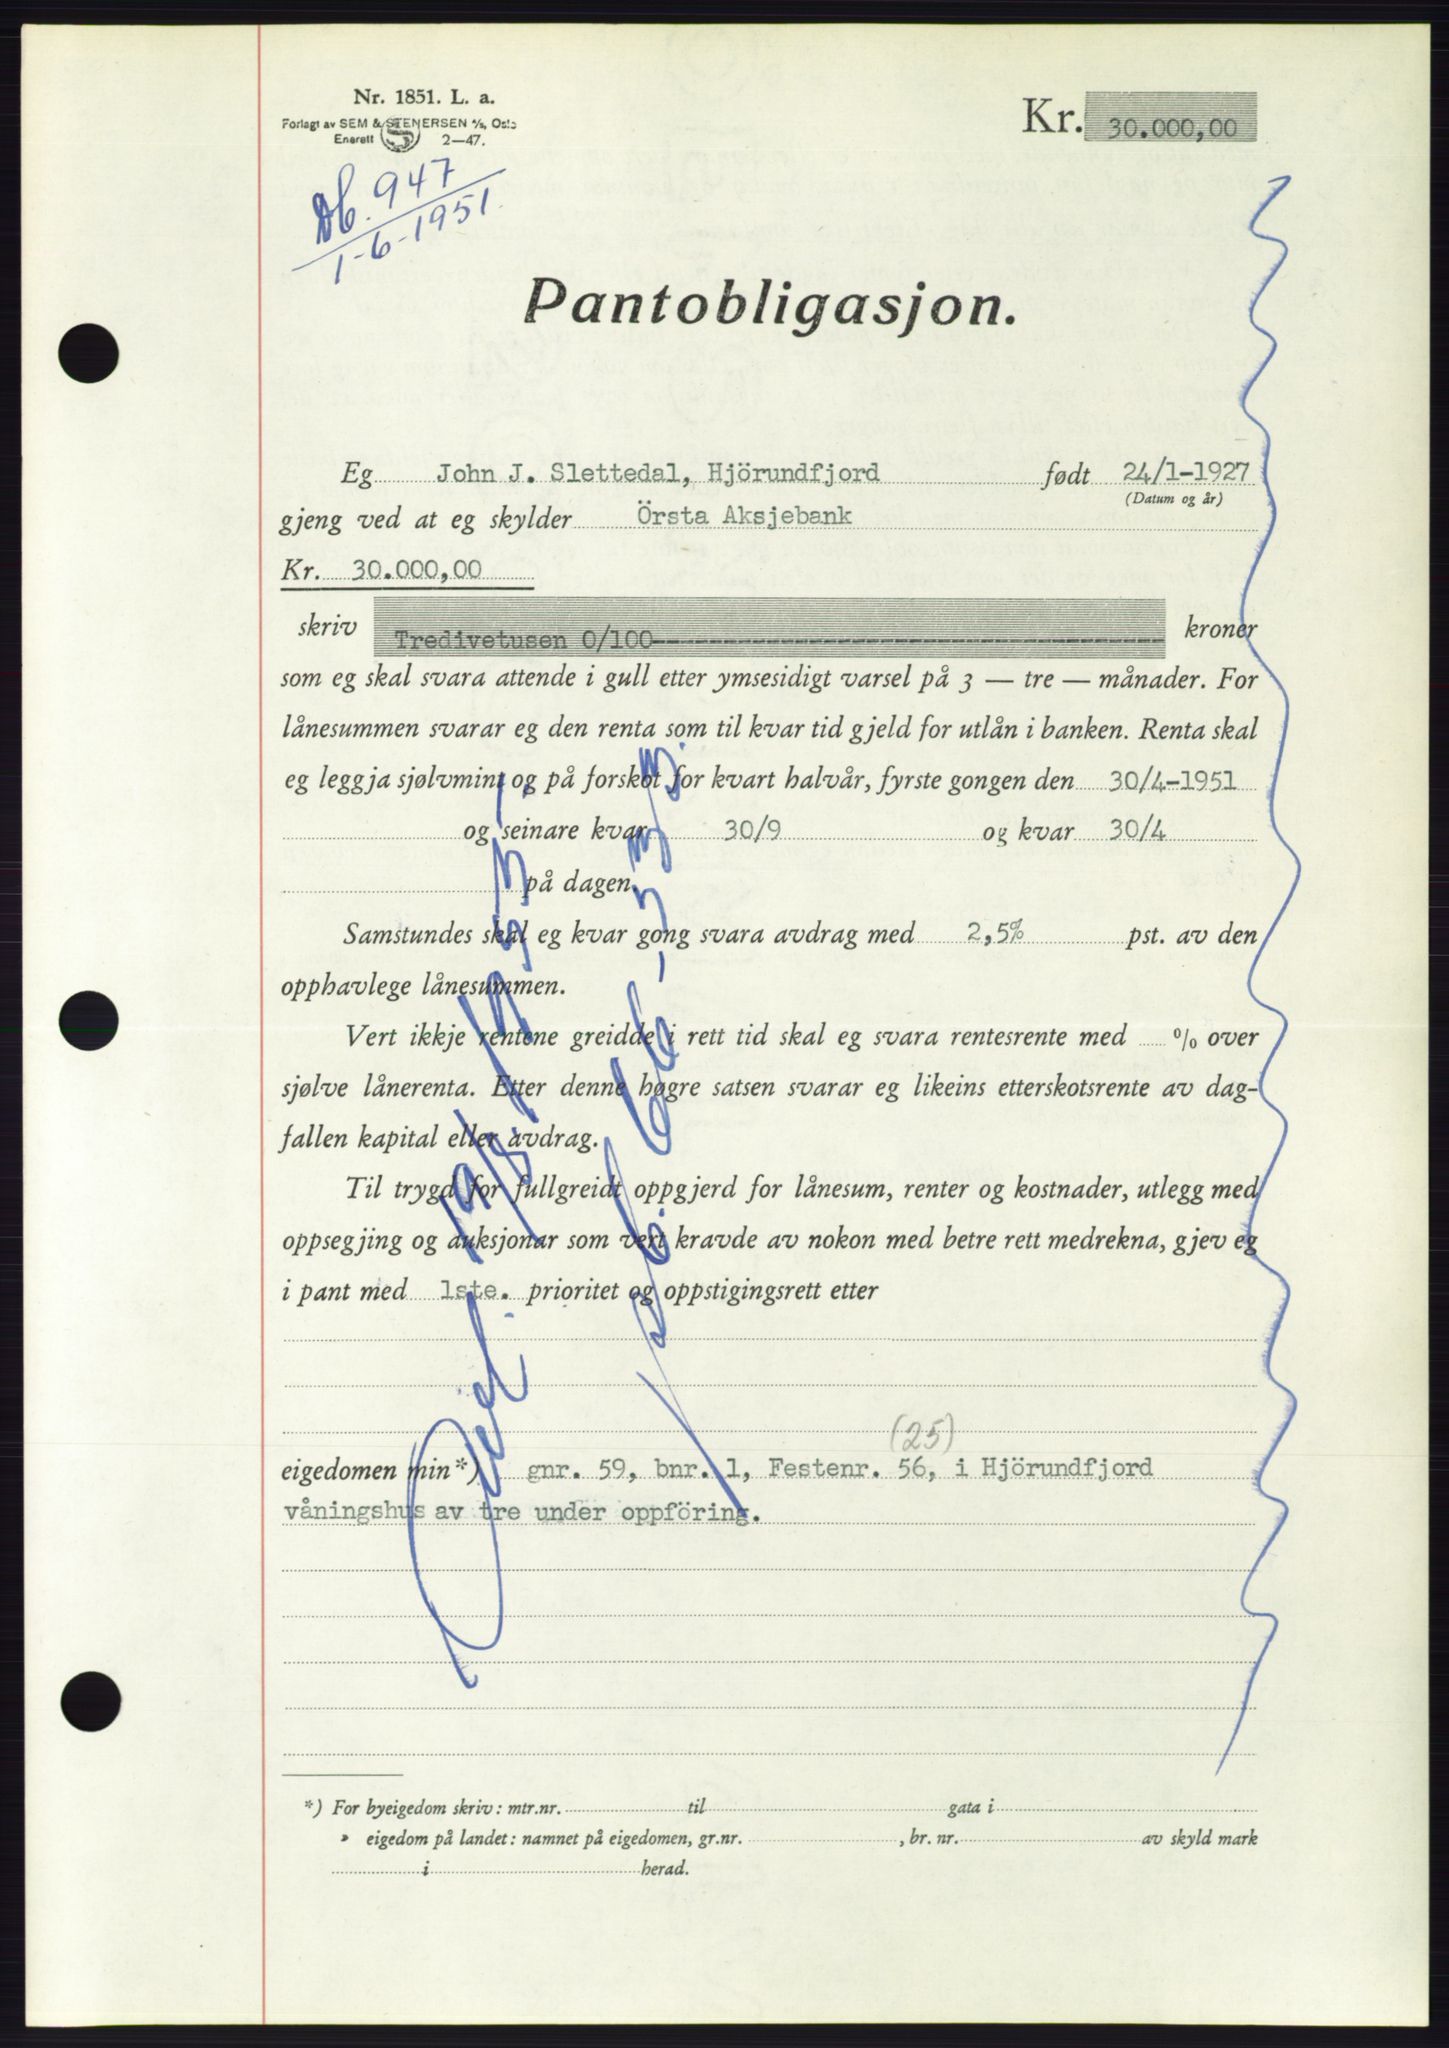 Nr. 1851. L. a.
Forlagt av SEM & STENERSEN A/S, Oslo
Enerett 2—47.
Kr. 30.000,00
Db. 947
1-6-1951
Pantobligasjon.
Eg John J. Slettedal, Hjörundfjord født 24/1-1927
(Datum og år)
gjeng ved at eg skylder Örsta Aksjebank
Kr. 30.000,00
skriv Tredivetusen 0/100 kroner
som eg skal svara attende i gull etter ymsesidigt varsel på 3 — tre — månader. For
lånesummen svarar eg den renta som til kvar tid gjeld for utlån i banken. Renta skal
eg leggja sjølvmint og på forskot for kvart halvår, fyrste gongen den 30/4-1951
og seinare kvar 30/9 og kvar 30/4
på dagen.
Samstundes skal eg kvar gong svara avdrag med 2,5% pst. av den
opphavlege lånesummen.
Vert ikkje rentene greidde i rett tid skal eg svara rentesrente med % over
sjølve lånerenta. Etter denne høgre satsen svarar eg likeins etterskotsrente av dag-
fallen kapital eller avdrag.
Til trygd for fullgreidt oppgjerd for lånesum, renter og kostnader, utlegg med
oppsegjing og auksjonar som vert kravde av nokon med betre rett medrekna, gjev eg
i pant med 1ste. prioritet og oppstigingsrett etter
(25)
eigedomen min*) gnr. 59, bnr. 1, Festenr. 56, i Hjörundfjord
våningshus av tre under oppföring.
*) For byeigedom skriv: mtr.nr. til gata i
» eigedom på landet: namnet på eigedomen, gr.nr. , br. nr. av skyld mark
i herad.